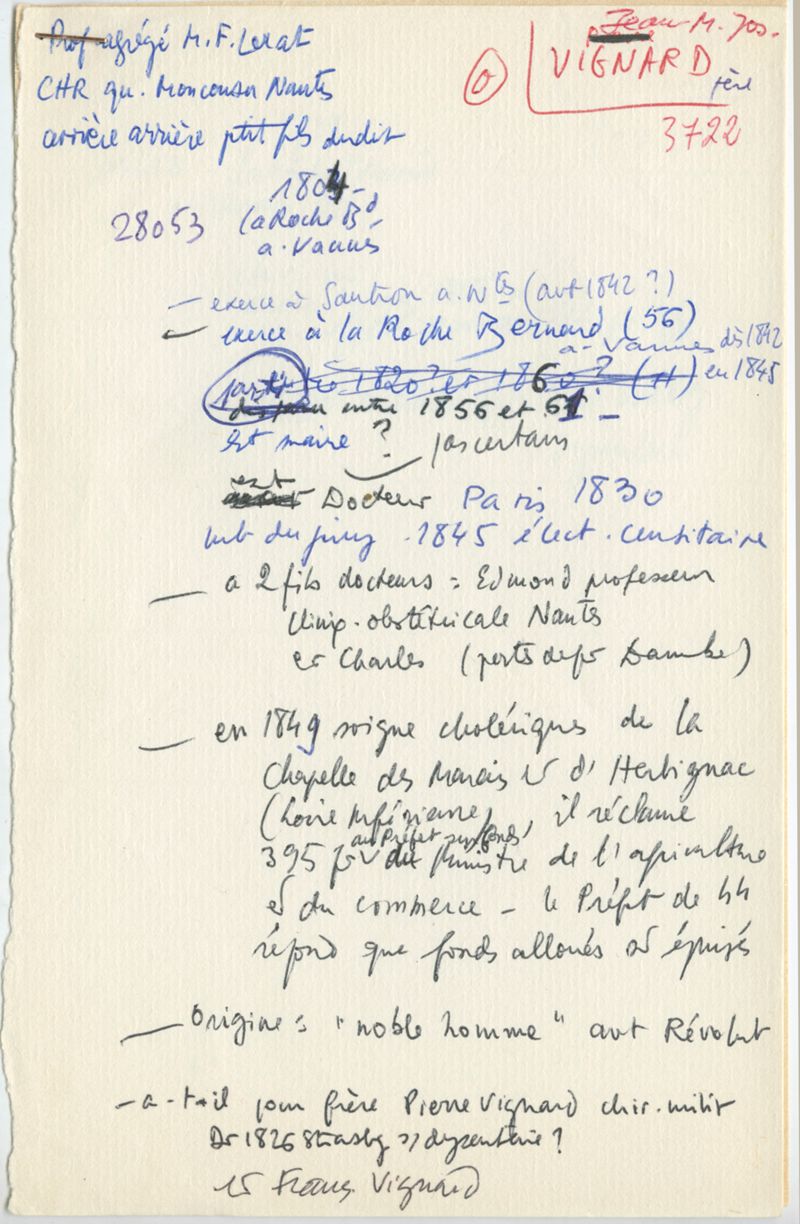 Prof agrégé M.F. Lerat
CHR qu. Monconsu Nantes
arrière arrière ptit fils dudit
Jean M. Jos.
O
VIGNARD
père
3722
1804 -
28053
la Roche Bd
a. Vannes
— exerce à Sautron a. Ntes (avt 1842 ?)
— exerce à la Roche Bernard (56)
a. Vannes dès 1842
1820 ? et 1860 ? en 1845
entre 1856 et 61 -
est maire ? pas certain
est Docteur Paris 1830
mb du jury . 1845 élect. censitaire
— a 2 fils docteurs : Edmond professeur
cliniq. obstétricale Nantes
et Charles
— en 1849 soigne cholériques de la
Chapelle des Marais et d'Herbignac
(Loire Inférieure), il réclame
au Préfet sur fonds
395 f du Ministre de l'agriculture
et du commerce - le Préfet de 44
répond que fonds alloués st épuisés
— Origine : "noble homme" avt Révolut
- a-t-il pour frère Pierre Vignard chir. milit
Dr 1826 Strasbg s/ dysenterie ?
et Franç. Vignard